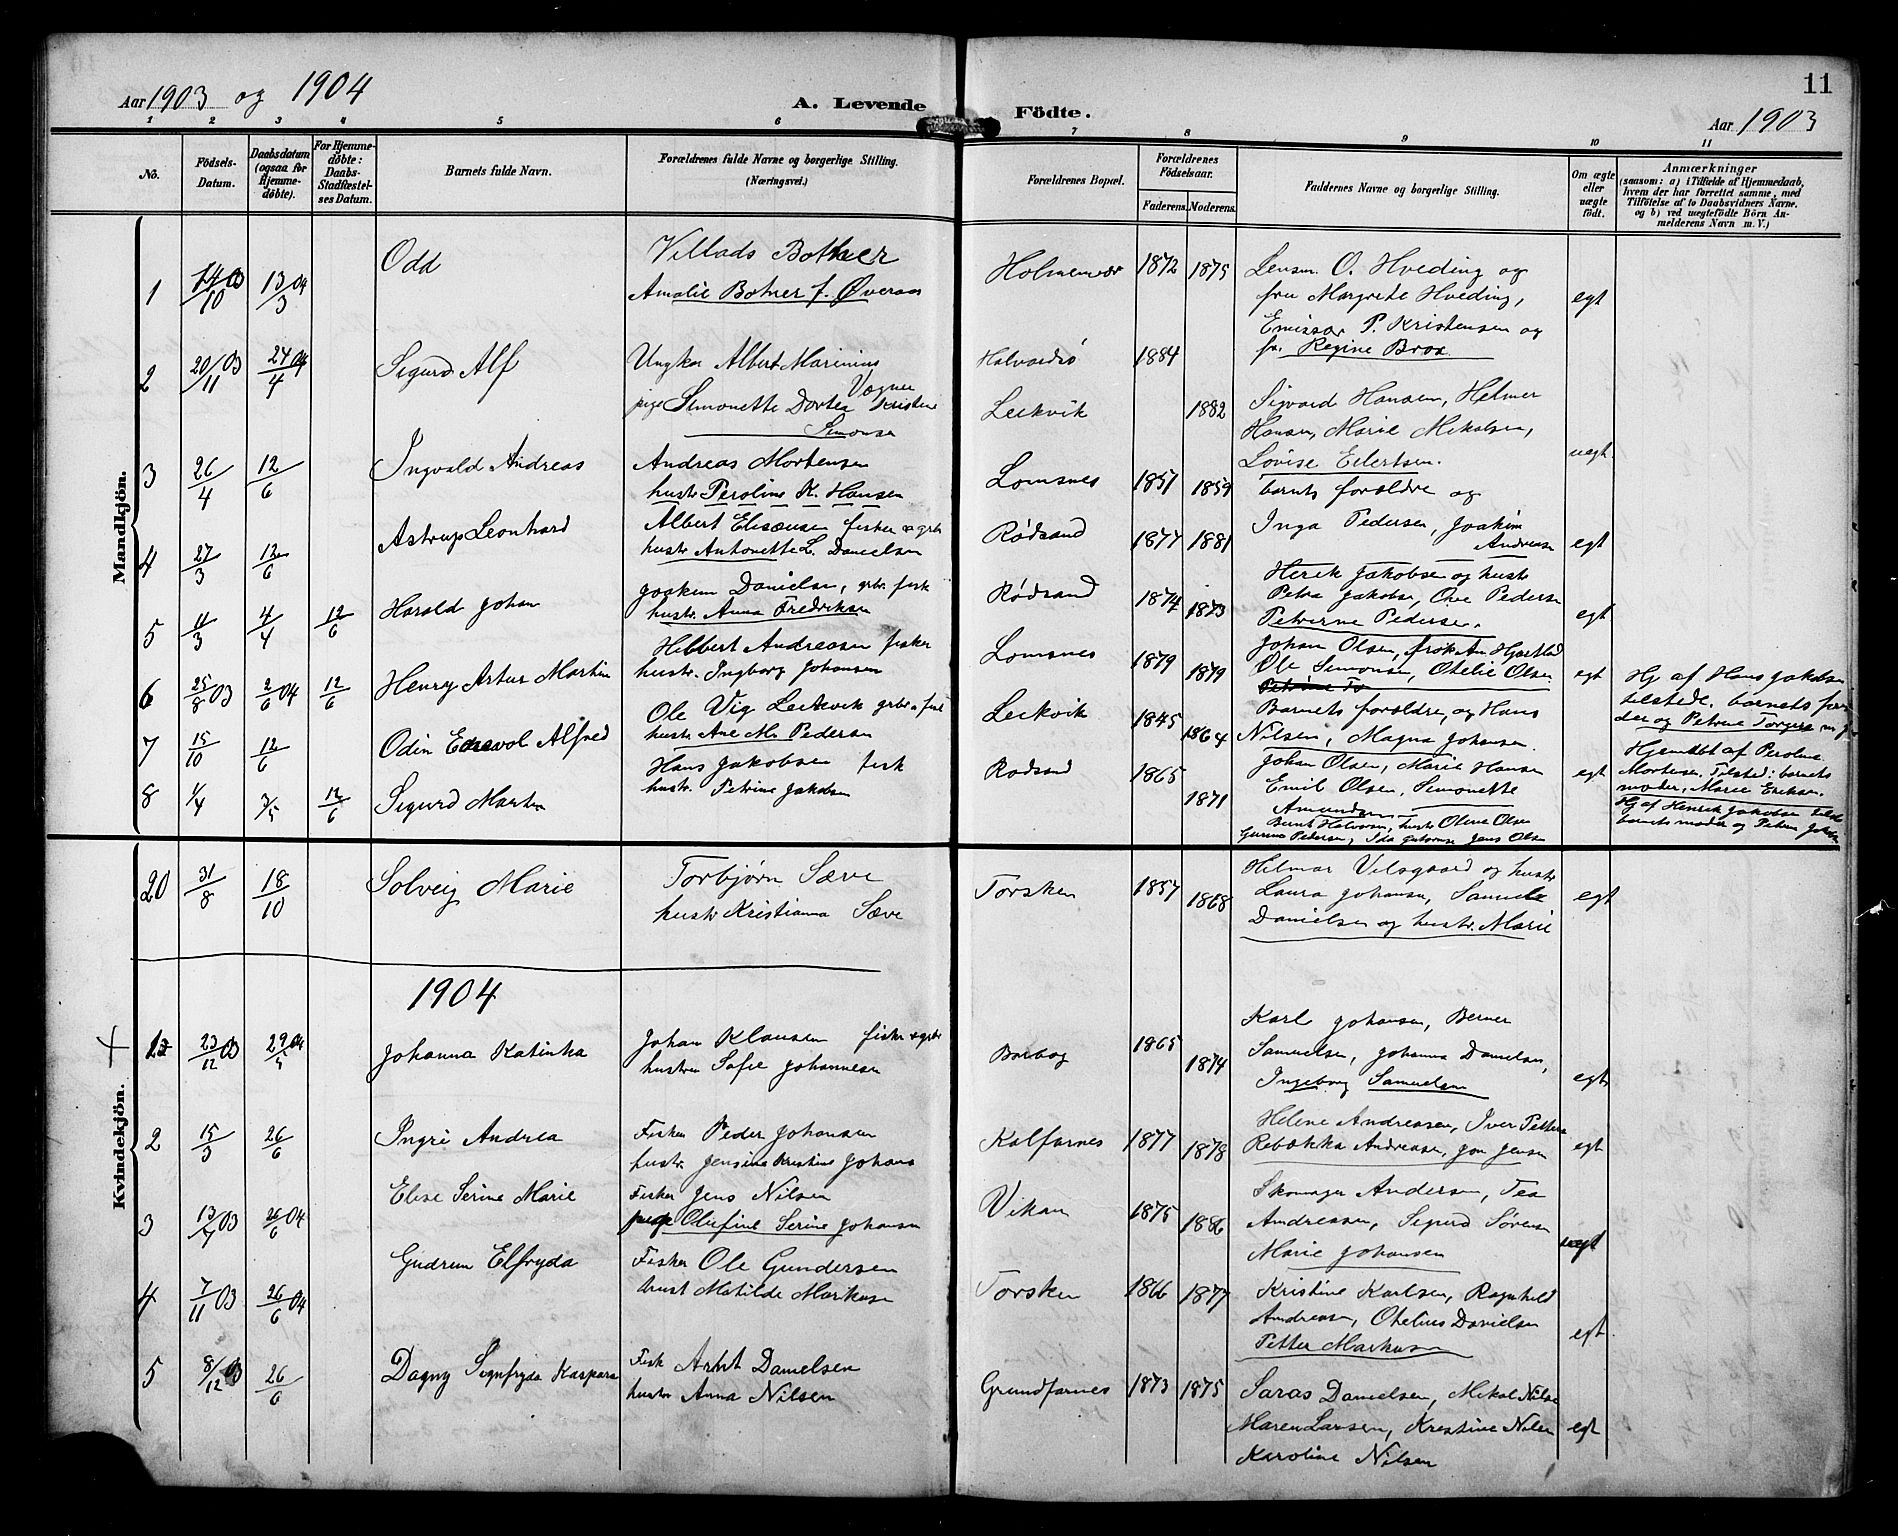 Aar 1903 og 1904
A. Levende Födte.
11
Aar 1903
1 2 3 4 5 6 7 8 9 10 11
No.
Födsels-Datum.
Daabsdatum (ogsaa for Hjemme-döbte).
For Hjemme-döbte: Daabs-Stadfæstel-ses Datum.
Barnets fulde Navn.
Forældrenes fulde Navne og borgerlige Stilling. (Næringsvei.)
Forældrenes Bopæl.
Forældrenes Födselsaar.
Faderens. Moderens.
Faddernes Navne og borgerlige Stilling.
Om ægte eller uægte födt.
Anmærkninger
(saasom: a) i Tilfælde af Hjemmedaab, hvem der har forrettet samme, med Tilföielse af to Daabsvidners Navne, og b) ved uægtefödte Börn An-melderens Navn m. V.)
Mandkjön.
1 14/10 03 13/3 04 Odd
Villads Bothner
Amalie Botner f. Øveraas
1872 1875
Lensm. O. Hveding og
fru Margrete Hveding,
Emissær P. Kristensen og
fr. Regine Brox
egt
2 20/11 03 24/4 04 Sigurd Alf
Ungkar Albert Marinius
Vogner
pige Simonette Dortea Kristine
Simonsen
1884
Leikvik 1882
Sigvard Hansen, Helmer
Hansen, Marie Mikalsen,
Lovise Eilertsen.
uegt
3 26/4 12/6 Ingvald Andreas
Andreas Mortensen
hustr Peroline K. Hansen
Lomsnes 1851 1859
barnets forældre og
Inga Pedersen, Joakim
Andreasen
egt
4 27/3 12/6 Astrup Leonhard
Albert Elisæusen fisker & grbr
hustr Antonette L. Danielsen
Rødsand 1877 1881
Herik Jakobsen og hustr
Petra Jakobse, Ove Pederse
Pedersen.
egt
5 11/3 4/4 12/6 Harald Johan
Joakim Danielsen, grbr. fisk
hustr. Anna Fredriksen
Rødsand 1874 1873
Johan Olsen,
Ole Simonsen, Otelie Olsen
egt
6 25/8 03 2/6 04 12/6 Henry Artur Martin
Hilbert Andreassen fisker
hustr. Ingborg Johansen
Lomsnes 1879 1879
Barnets forældre, og Hans
Nilsen, Magna Johansen.
Hj. af Hans Jakobsen
tilstede. barnets
og Petrine
7 15/10 12/6 Odin Alfred
Ole Vig Leikvik
hustr. Ane M. Pedersen
Leikvik 1845 1864
Johan Olsen, Marie Hansen
Emil Olsen, Simonette
Amundsen
egt
Hjemdøbt af Peroline
Mortensen. Tilsted: barnets
moder, Marie Eriksen.
8 1/4 3/5 12/6 Sigurd Martin
Hans Jakobsen fisk
hustr. Petrine Jakobsen
Rødsand 1865 1871
Bernt Halvorsen, hustr Oline Olsen
Pedersen, Ida Jens Olsen
Hj af Henrik Jakobsen
barnets moder og Petra Jakobse
Kvindekjön.
20 31/8 18/10 Solveig Marie
Torbjørn Sæve
hustr Kristianna Sæve
Torsken 1857 1868
Hilmar Vilsgaard og hustr
Laura Johansen, Samuel
Danielsen og hustr. Marie
egt
1904
1 23/12 03 29/5 04 Johanna Katinka
Johan Klausen fisker & grbr
hustru Sofie Johannesen
1865 1874
Karl Johansen, Berner
Samuelsen, Johanna Danielsen,
Ingeborg Samuelsen
egt
2 15/3 26/6 Ingri Andrea
Fisker Peder Johansen
hustr. Jensine Kristine Johans
Kalfarnes 1877 1878
Helene Andreasen, Iver Petters
Rebækka Andreasen, Jon Jensen
egt
3 13/7 03 26/6 04 Elise Serine Marie
Fisker Jens Nilsen
pige Olufine Serine Johansen
Vikan 1875 1886
Skomager Andersen, Tea
Andreassen, Sigurd Sørensen
Marie Johansen
uegt
4 7/11 03 26/6 04 Gudrun Elfryda
Fisker Ole Gundersen
hust Matilde Markusen
Torsken 1866 1877
Kristine Karlsen, Ragnhild
Andreasen, Otelius Danielsen
Petter Markusen
egt
5 8/12 03 26/6 Dagny Signfryda Kaspara
Fisk Arnt Danielsen
hustr Anna Nilsen
Grundfarnes 1873 1875
Saras Danielsen, Mikal Nilse
Maren Larsen, Kristine Nilsen
Karoline Nilsen
egt